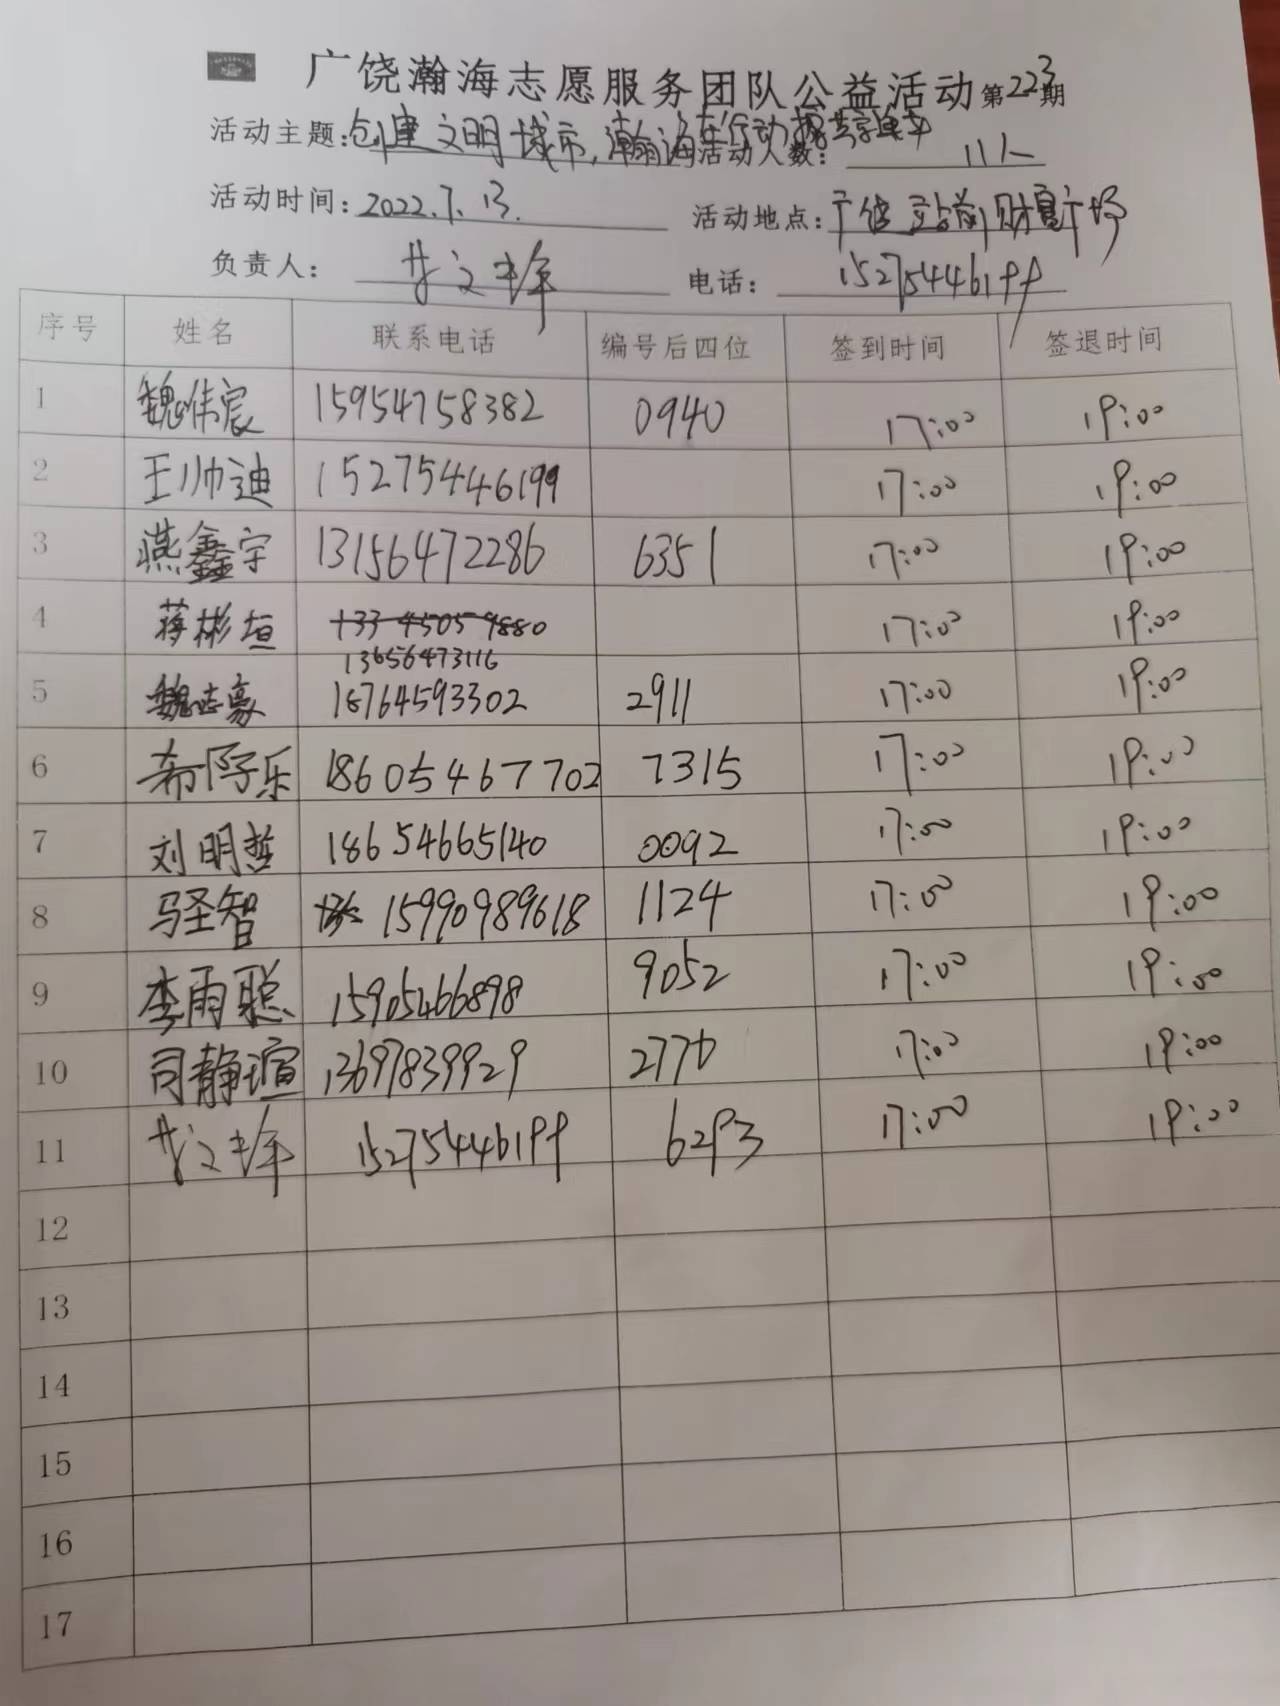 广饶瀚海志愿服务团队公益活动第223期
活动主题:创建文明城市,瀚海在行动擦共享单车 活动人数: 11人
活动时间:2022.7.13. 活动地点:广饶站前财富广场
负责人: 电话: 15275446199
序号 姓名 联系电话 编号后四位 签到时间 签退时间
1 魏伟宸 15954758382 0940 17:00 19:00
2 王帅迪 15275446199 17:00 19:00
3 燕鑫宇 13156472286 6351 17:00 19:00
4 蒋彬垣 13345059880 17:00 19:00
13656473116
5 魏志豪 18764593302 2911 17:00 19:00
6 乐 18605467702 7315 17:00 19:00
7 刘明哲 18654665140 0092 17:00 19:00
8 智 15990989618 1124 17:00 19:00
9 李雨聪 15905466898 9052 17:00 19:00
10 司静瑄 13697839929 2776 17:00 19:00
11 15275446199 6293 17:00 19:00
12
13
14
15
16
17